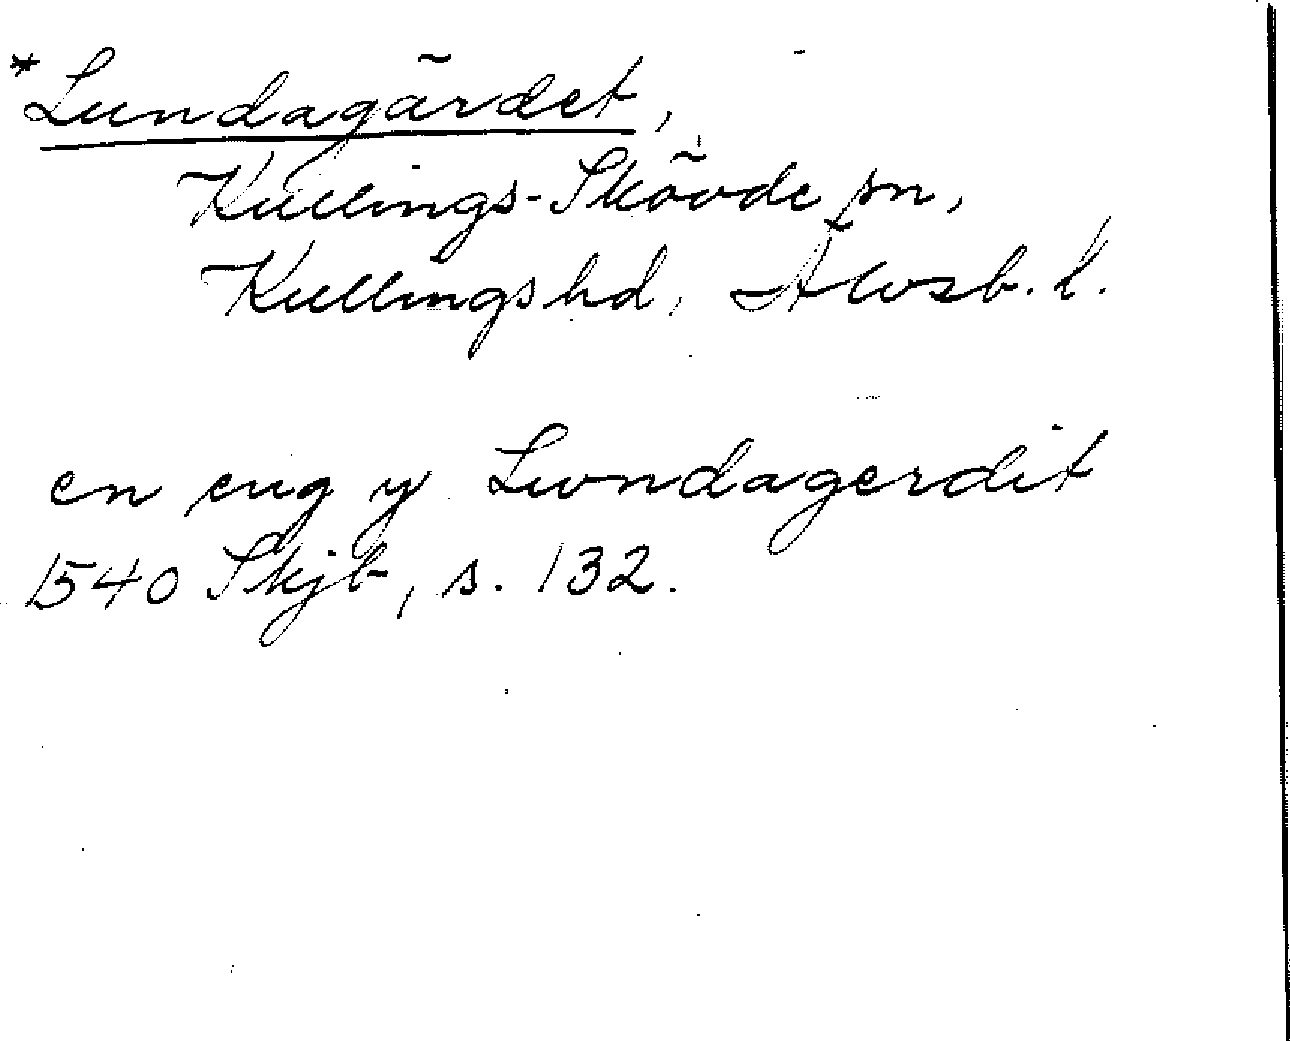 *Lundagärdet,
Kullings-Skövde sn,
Kullings hd, Älvsb. l.
en eng y Lwndagerdit
1540 Skjb, s. 132.